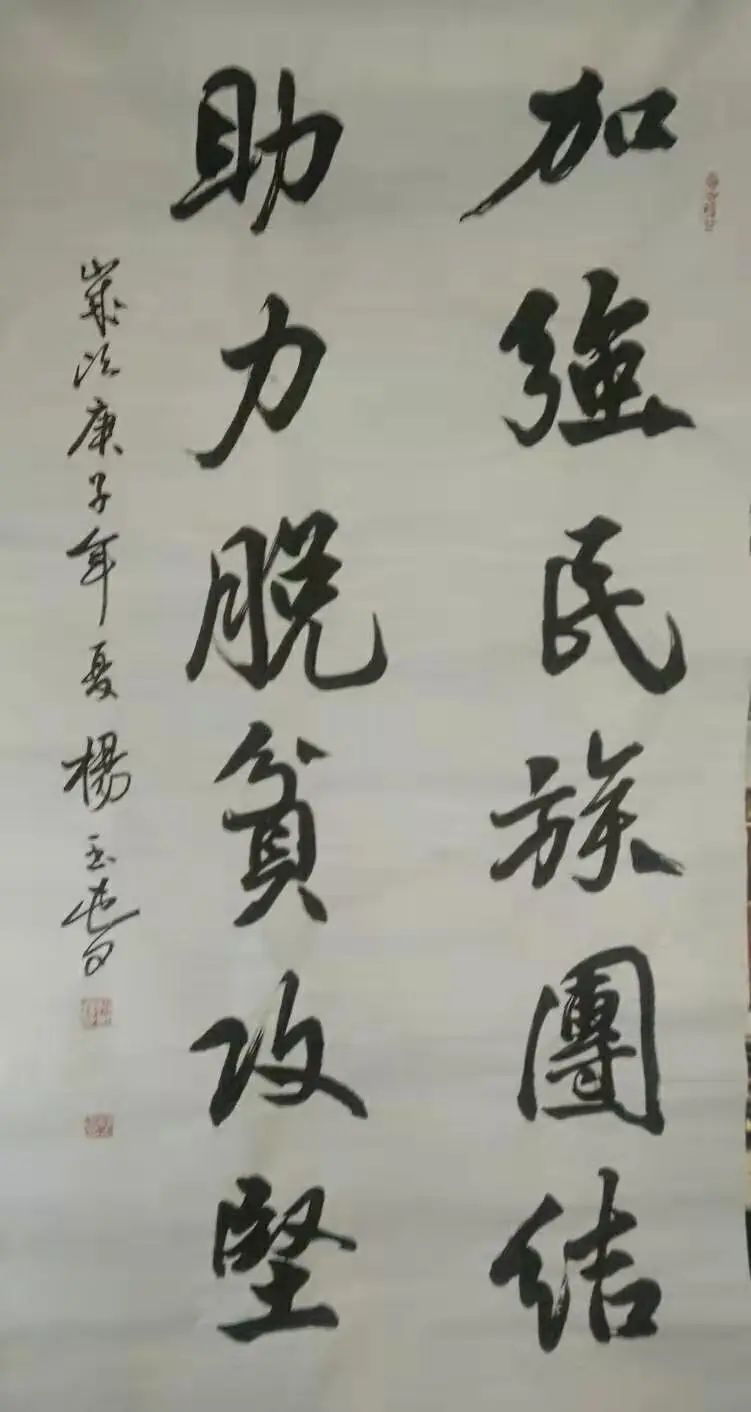 加強民族團结
助力脱貧攻堅
歲次庚子年夏楊玉